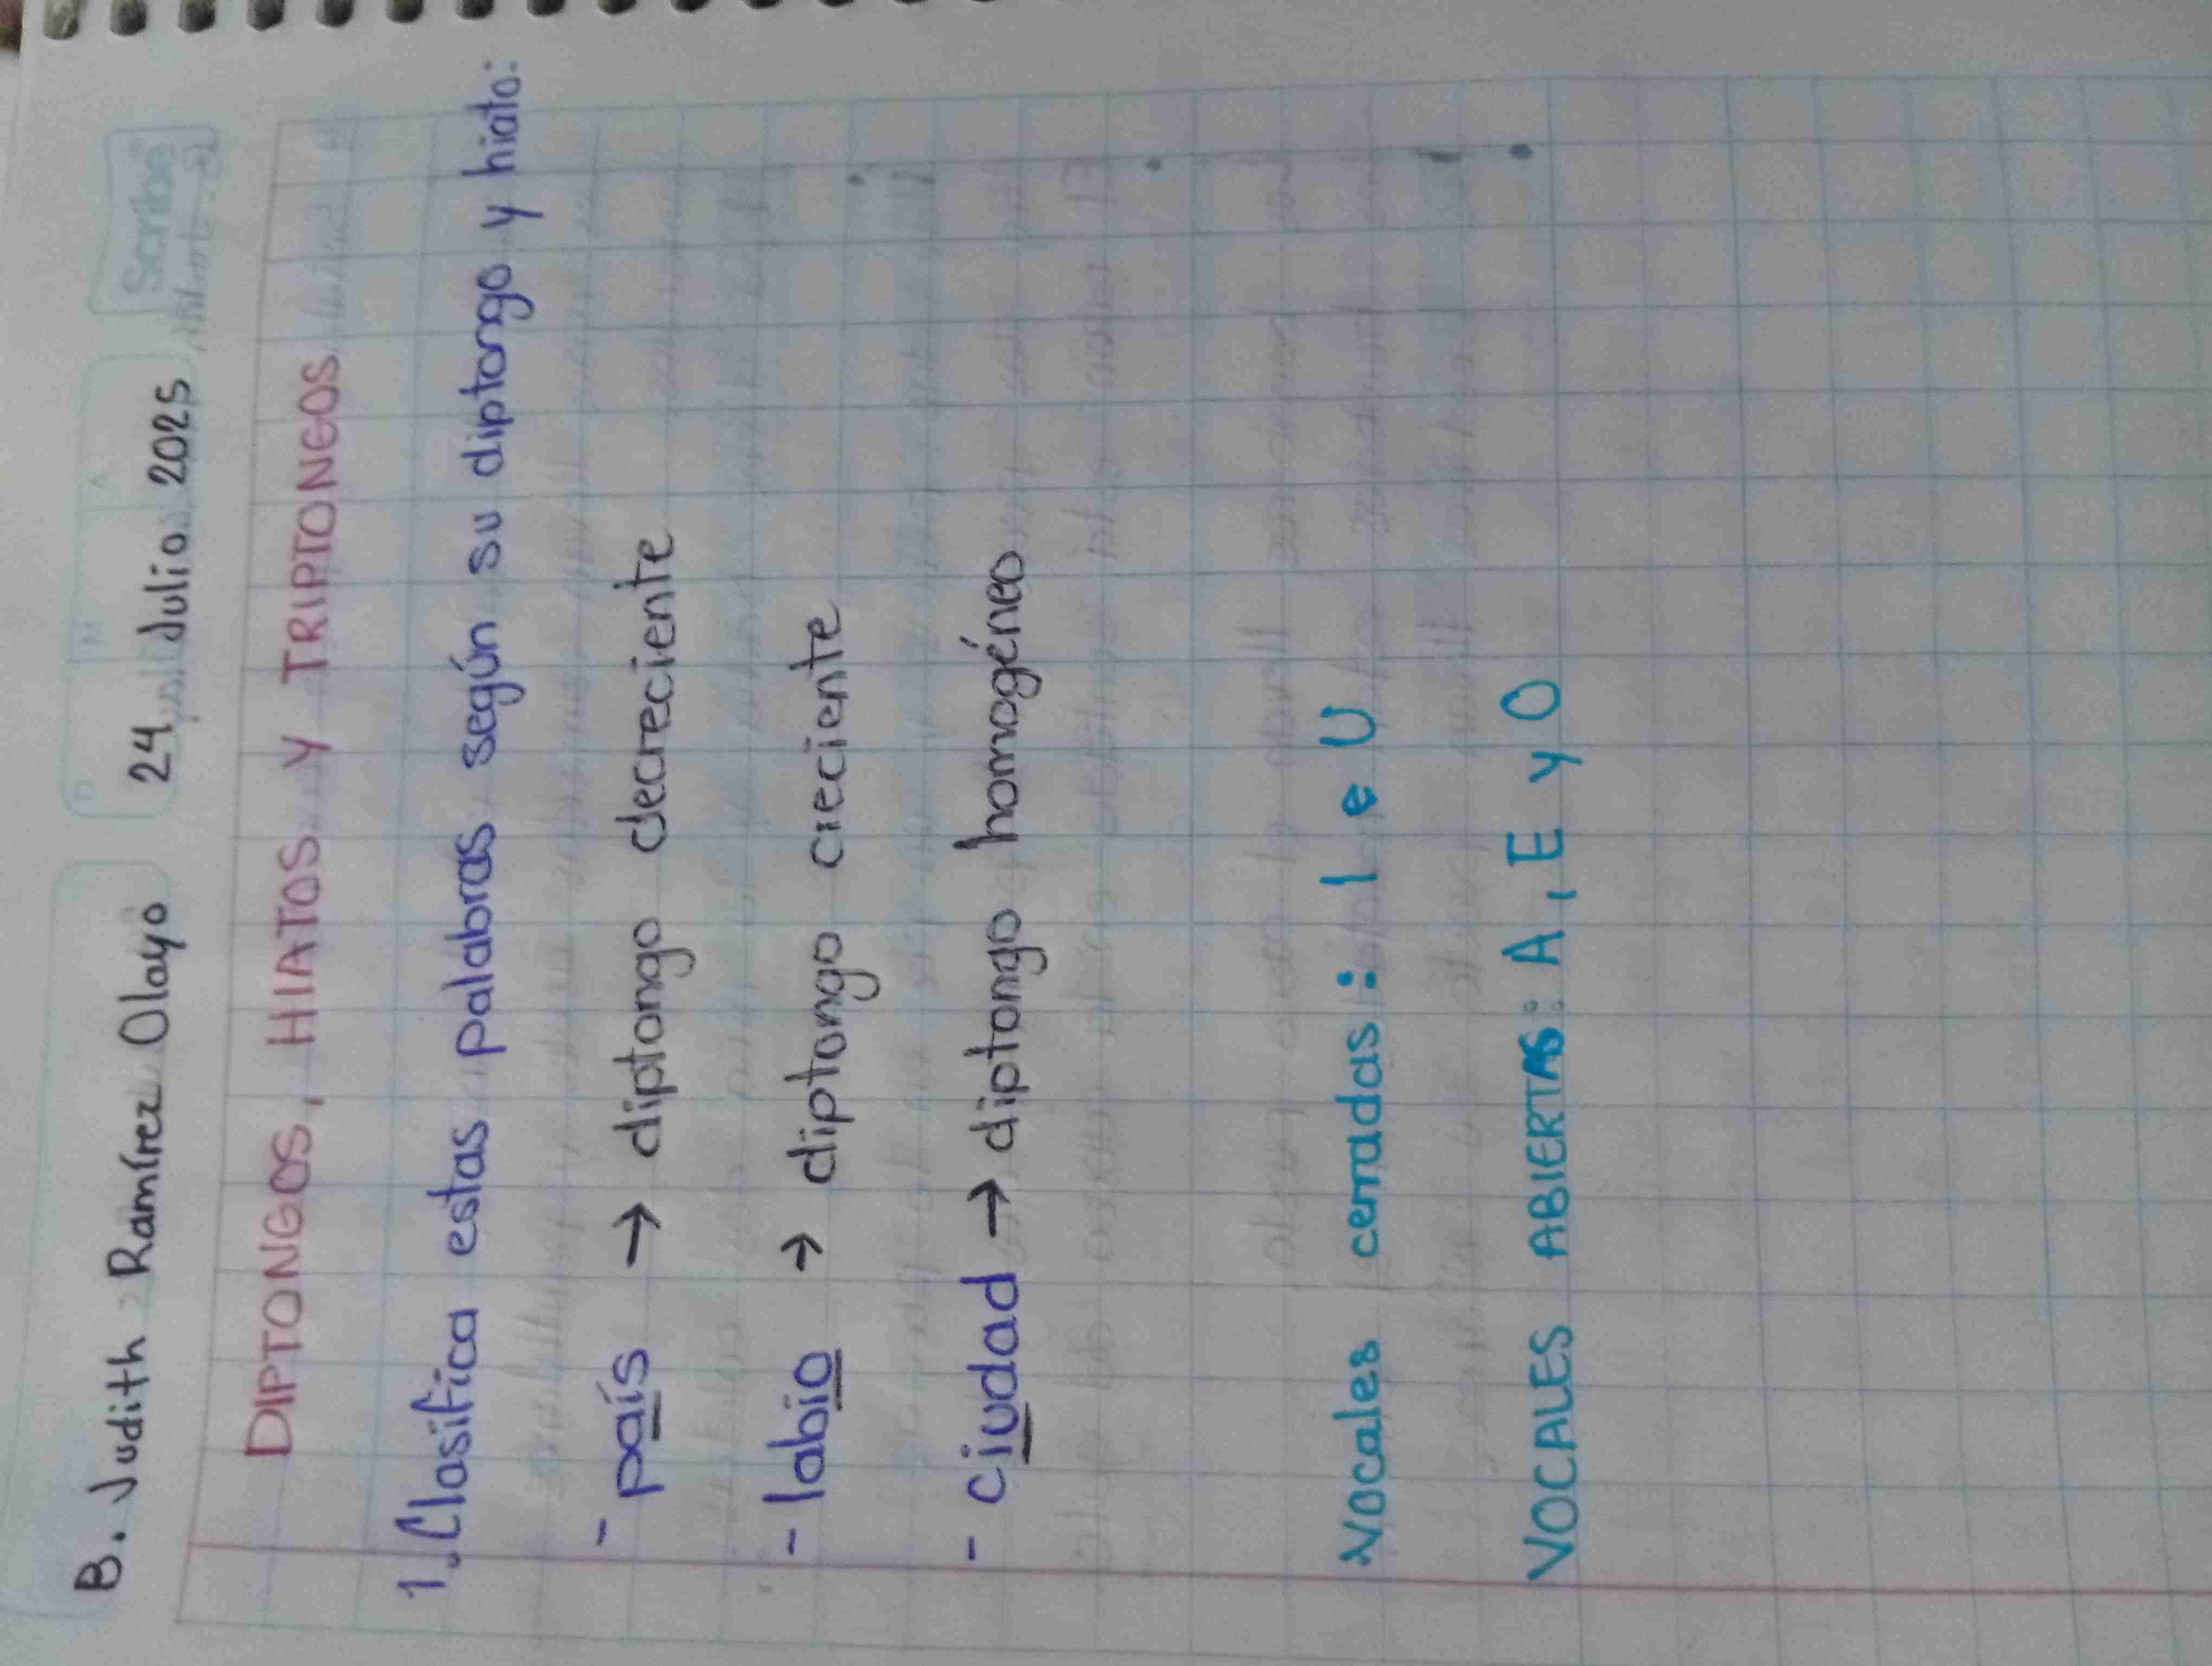 Scribe
D M A
B. Judith Ramírez Olayo 24 Julio 2025
DIPTONGOS, HIATOS Y TRIPTONGOS
1. Clasifica estas palabras según su diptongo y hiato:
- país → diptongo decreciente
- labio → diptongo creciente
- ciudad → diptongo homogéneo
Vocales cerradas: I e U
VOCALES ABIERTAS: A, E y O